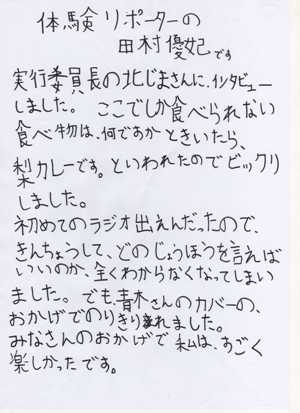 体験リポーターの
田村優妃です
実行委員長の北じまさんに、インタビュー
しました。ここでしか食べられない
食べ物は、何ですかときいたら、
梨カレーです。といわれたのでビックリ
しました。
初めてのラジオ出えんだったので、
きんちょうして、どのじょうほうを言えば
いいのか、全くわからなくなってしまい
ました。でも、青木さんのカバーの、
おかげでのりきれました。
みなさんのおかげで私は、すごく
楽しかったです。